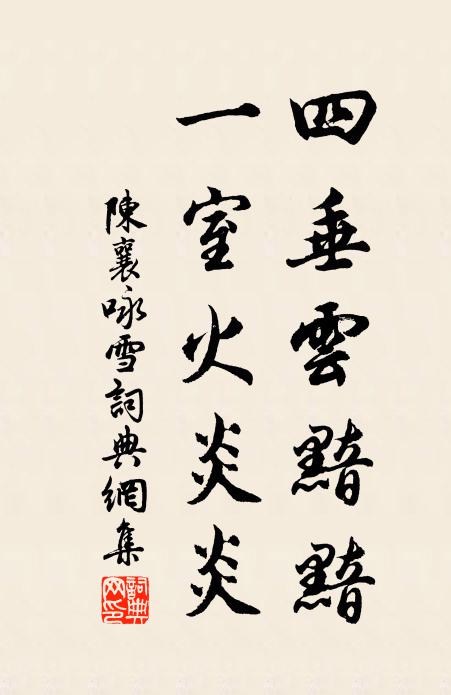 四垂雲黯黯
一室火炎炎
陳襄咏雪詞典網集
詞典網印